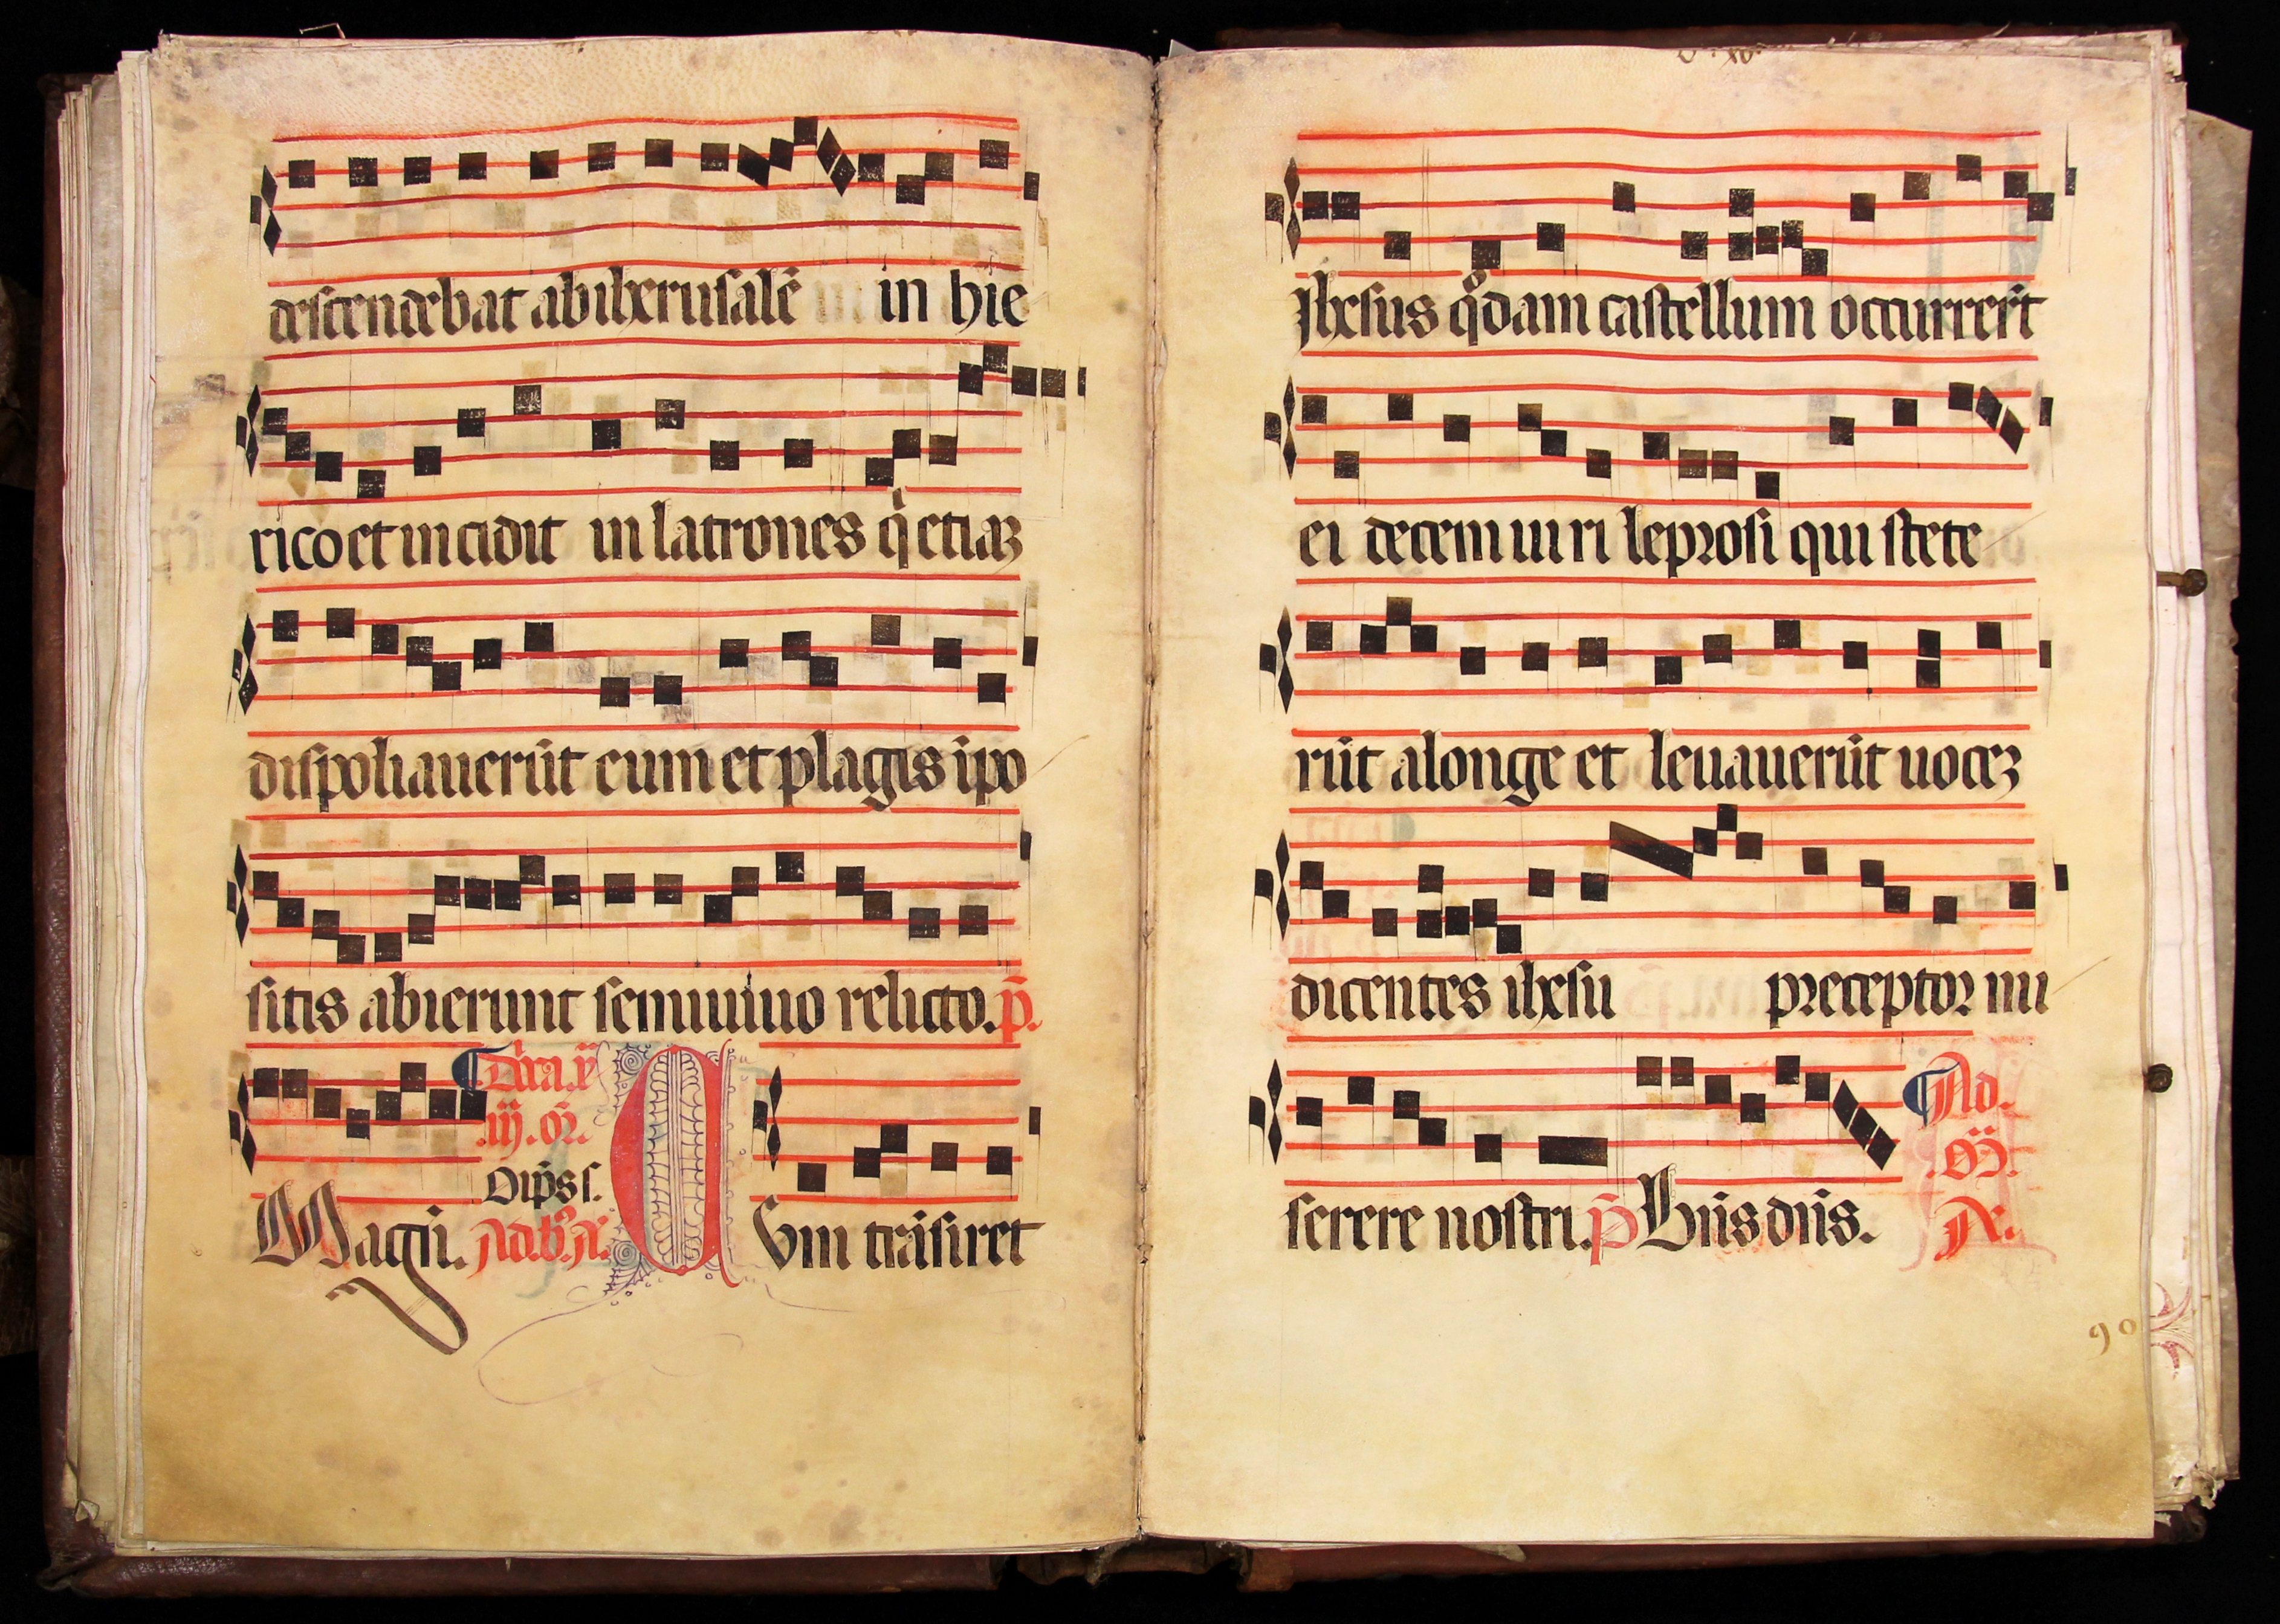 descendebat ab iherusalē in hie
rico et incidit in latrones q̇ etiaꝫ
dispoliauerūt eum et plagis ipo
sitis abierunt semiuiuo relicto. p̄.
Dn̄ica. x
iij. or̄.
Oip̄s s.
Magn. Ad. b̓. A.
Cum trāsiret
Ihesus q̊dam castellum occurrerūt
ei decem uiri leprosi qui stete
rūt alonge et leuauerūt uoceꝫ
dicentes ihesu preceptor mi
serere nostri. p̄ Bn̄s dn̄s.
Ad.
A.
90